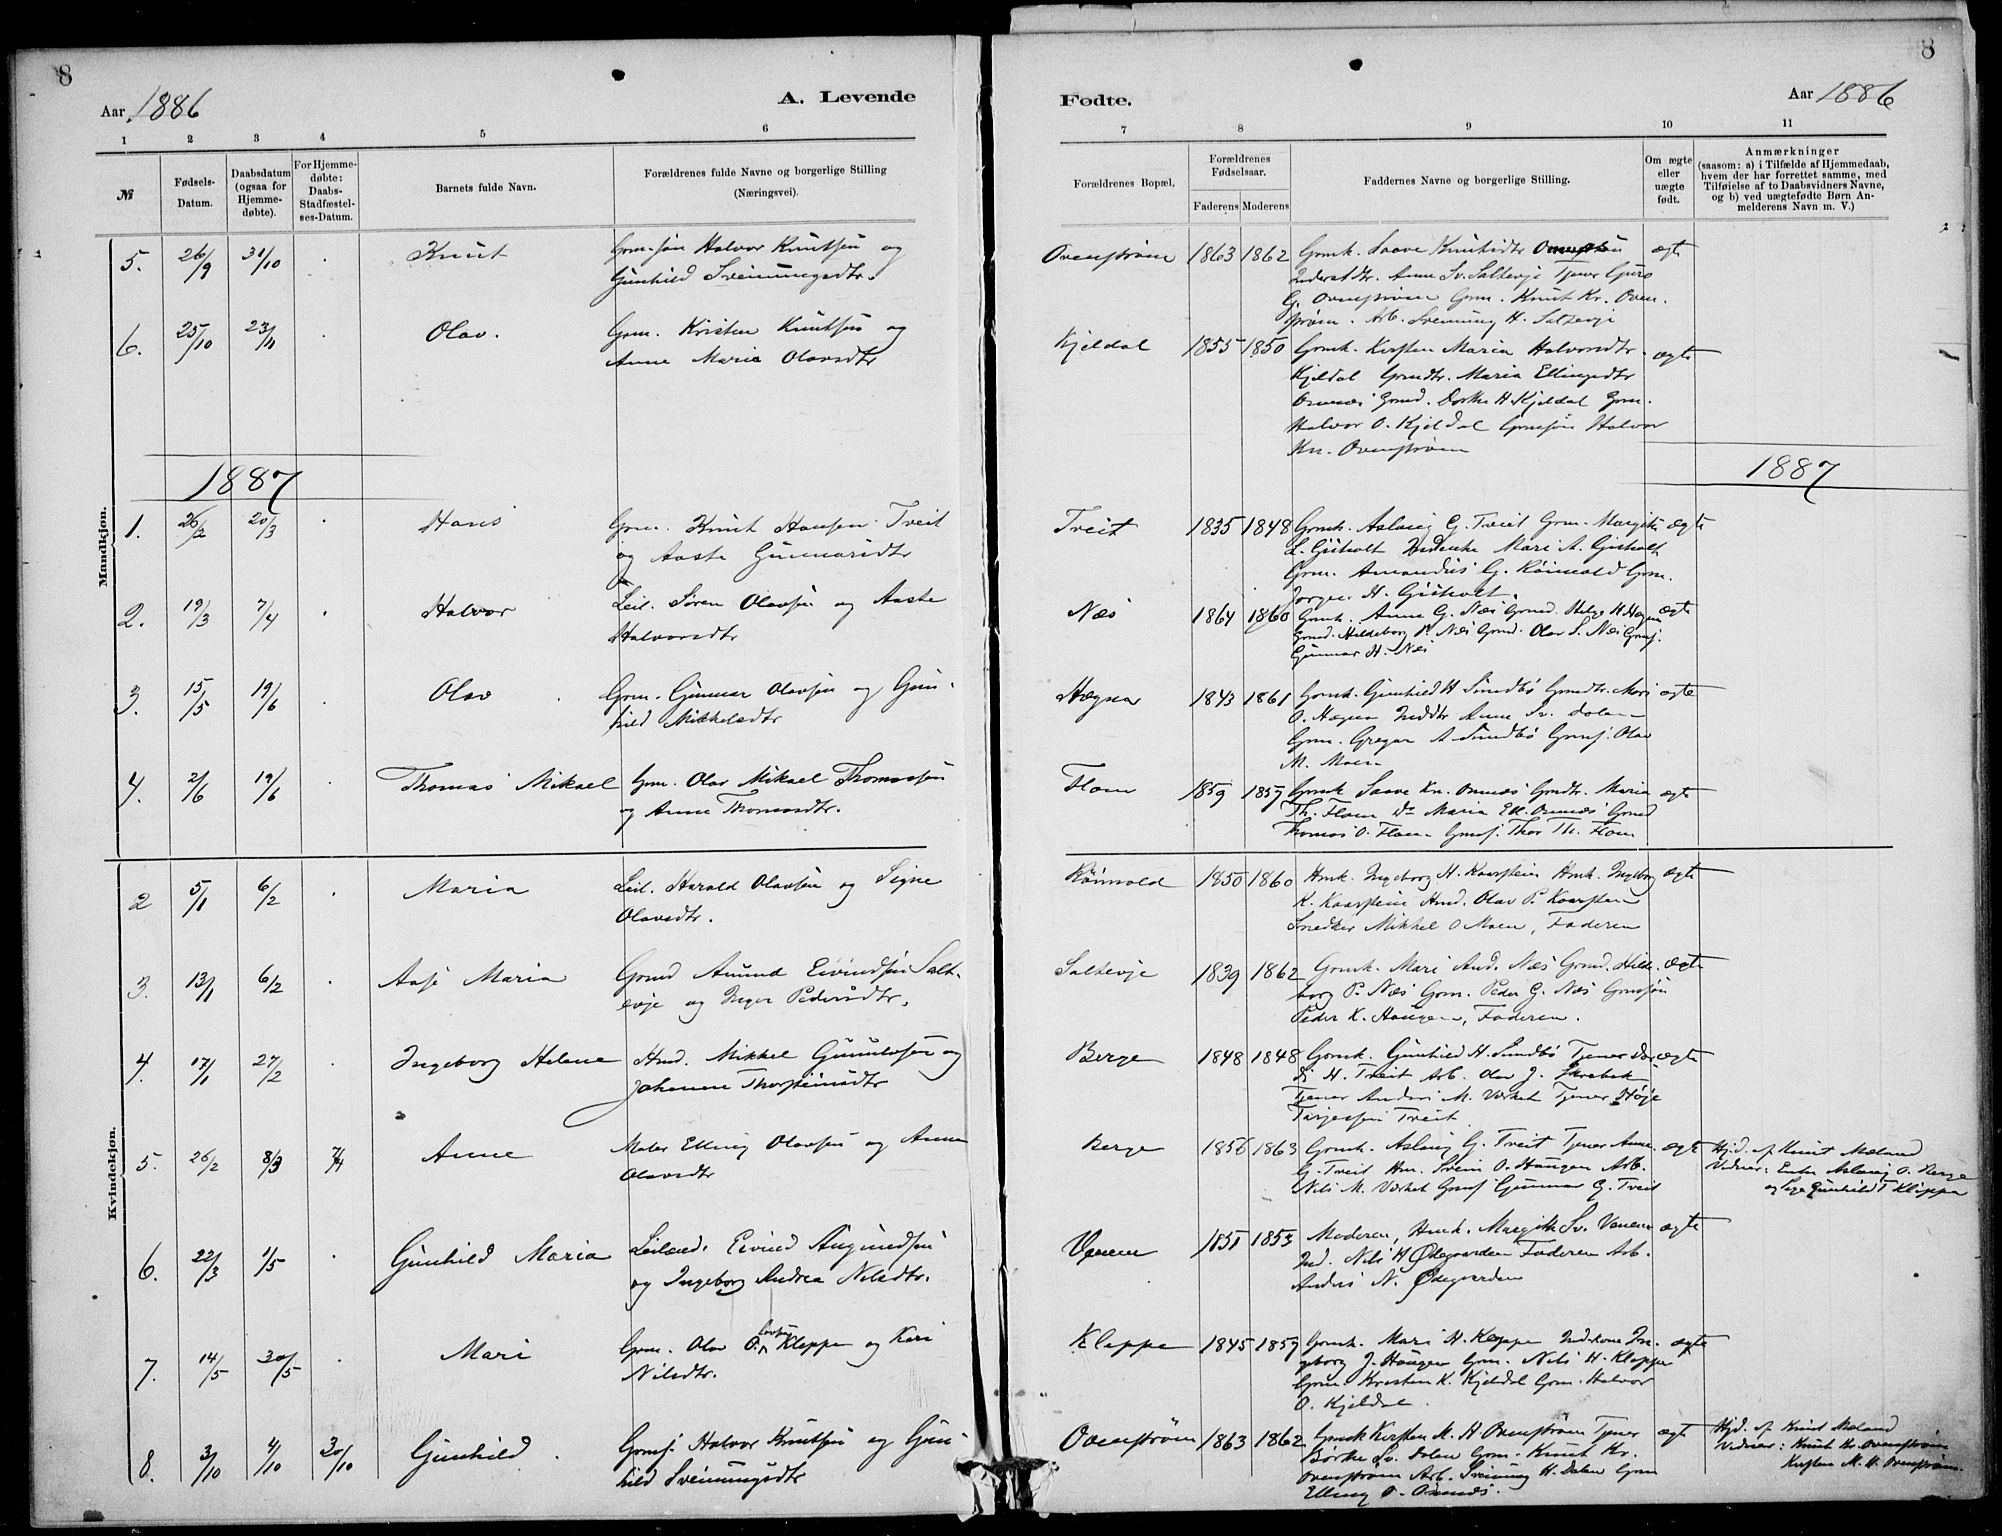 8
Aar 1886
A. Levende
1 2 3 4 5 6
№
Fødsels-Datum.
Daabsdatum (ogsaa for Hjemmedøbte).
For Hjemmedøbte: Daabs-Stadfæstelses-Datum.
Barnets fulde Navn.
Forældrenes fulde Navne og borgerlige Stilling
(Næringsvei).
Mandkjøn.
5. 26/9 31/10 Knut Grmsøn Halvor Knutsen og
Gunhild Sveinungsdtr.
6. 25/10 23/11 Olav. Grm. Kristen Knutsen og
Anne Maria Olavsdtr
1887
1. 26/2 20/3 Hans Grm. Knut Hansen Treit
og Aaste Gunnarsdtr
2. 19/3 7/4 Halvor Leil. Søren Olavsen og Aaste
Halvorsdtr
3. 15/5 19/6 Olav Grm. Gunnar Olavsen og Gun-
hild Mikkelsdtr
4. 2/6 19/6 Thomas Mikael Grm. Olav Mikael Thomassen
og Anne Thomasdtr.
Kvindekjøn.
2 5/1 6/2 Maria Leil. Harald Olavsen og Signe
Olavsdtr.
3. 13/1 6/2 Aase Maria Grmd Amund Eivindsen Salt-
evje og Inger Pedersdtr.
4. 17/1 27/2 Ingeborg Helene Hmd. Mikkel Gunulvsen og
Johanne Thorsteinsdtr
5. 26/2 8/3 7/4 Anne Maler Elling Olavsen og Anne
Olavsdtr
6. 22/3 1/5 Gunhild Maria Leilend. Eivind Augundsen
og Ingeborg Andrea Nilsdtr.
7. 14/5 30/5 Mari Grm. Olav O. Kleppe og Kari
Nilsdtr.
8. 3/10 4/10 30/10 Gunhild Grmsj. Halvor Knutsen og Gun-
hild Sveinungsdtr
8
Fødte.
Aar 1886
7 8 9 10 11
Forældrenes Bopæl.
Forældrenes Fødselsaar.
Faderens Moderens
Faddernes Navne og borgerlige Stilling.
Om ægte eller uægte født.
Anmærkninger
(saasom: a) i Tilfælde af Hjemmedaab,
hvem der har forrettet samme, med
Tilføielse af to Daabsvidners Navne,
og b) ved uægtefødte Børn An-
melderens Navn m. V.)
Ovenstrøm 1863 1862 Grmk. Saave Knutsdtr ægte
Anne Sv. Saltevje Tjener Guro
G. Ovenstrøm Grm. Knut Kr. Oven-
strøm. Arb. Sveinung H. Saltevje
Kjeldal 1855 1850 Grmk. Kirsten Maria Halvorsdtr. ægte
Kjeldal Grmdtr. Maria Ellingsdtr
Omnes Grmd. Dorthe H. Kjeldal Grm.
Halvor O. Kjeldal Grmsøn Halvor
Kn. Ovenstrøm
1887
Treit 1835 1848 Grmk. Aslaug G. Treit Grm. Margit ægte
L. Gisholt Mari A. Gisholt
Grm. Amandus G. Röinvold Grm.
Jørgen H. Gisholt.
Næs 1864 1860 Grmk. Anne G. Næs Grmd. Helge H. Hegna ægte
Grmd. Hildeborg P. Næs Grmd. Olav S. Næs Grmsj.
Gunnar H. Næs
Hegna 1843 1861 Grmk. Gunhild H Sundbö Grmdtr. Mari ægte
O. Hegna Inddtr Anne Sv. Dolen
Grm. Gregar A Sundbö Grmsj. Olav
M. Moen
Flom 1859 1857 Grmk Saave Kn. Omnes Grmdtr. Maria ægte
Th. Flom Do Maria Ell. Omnes Grmd
Thomas O. Flom Grmsj. Thor Th. Flom
Röinvold 1850 1860 Hmk. Ingeborg H. Kaarstein Hmk. Ingeborg ægte
K. Kaarstein Hmd. Olav P. Kaarstein
Snedker Mikkel O Moen, Faderen
Saltevje 1839 1862 Grmk. Mari And. Næs Grmd. Hilde- ægte
borg P. Næs Grm. Peder G. Næs Grmsøn
Peder K. Haugen, Faderen.
Berge 1848 1848 Grmk. Gunhild H. Sundbö Tjener ægte
H. Treit Arb. Olav J.
Tjener Anders M. Værket Tjener Høje
Tarjessen Treit
Berge 1856 1863 Grmk. Aslaug G. Treit Tjener Anne ægte Hjd. af Knut Meland
G. Treit Hm. Svein O. Haugen Arb. Vidner: Enke Aslaug O. Berge
Nils M. Værket Grmsj Gunnar G. Treit og Gunhild T Kleppe
Venem 1851 1853 Moderen, Hmk. Margith Sv. Venem ægte
Ind. Nils H Ødegaarden Faderen Arb.
Anders N. Ødegaarden
Kleppe 1845 1859 Grmk. Mari H. Kleppe Inderkone In- ægte
geborg J. Haugen Grm. Nils H. Kleppe
Grm. Kristen K. Kjeldal Grm. Halvor
O. Kjeldal.
Ovenstrøm 1863 1862 Grmk Kirsten M. H Ovenstrøm Tjener ægte Hjd. af Knut Meland
Börte Sv. Dolen Grm. Knut Kr. Vidner: Knut Kr. Ovenstrøm
Ovenstrøm Arb. Sveinung H. Dolen Grm Kirsten M. H. Ovenstrøm.
Elling O. Omnes.